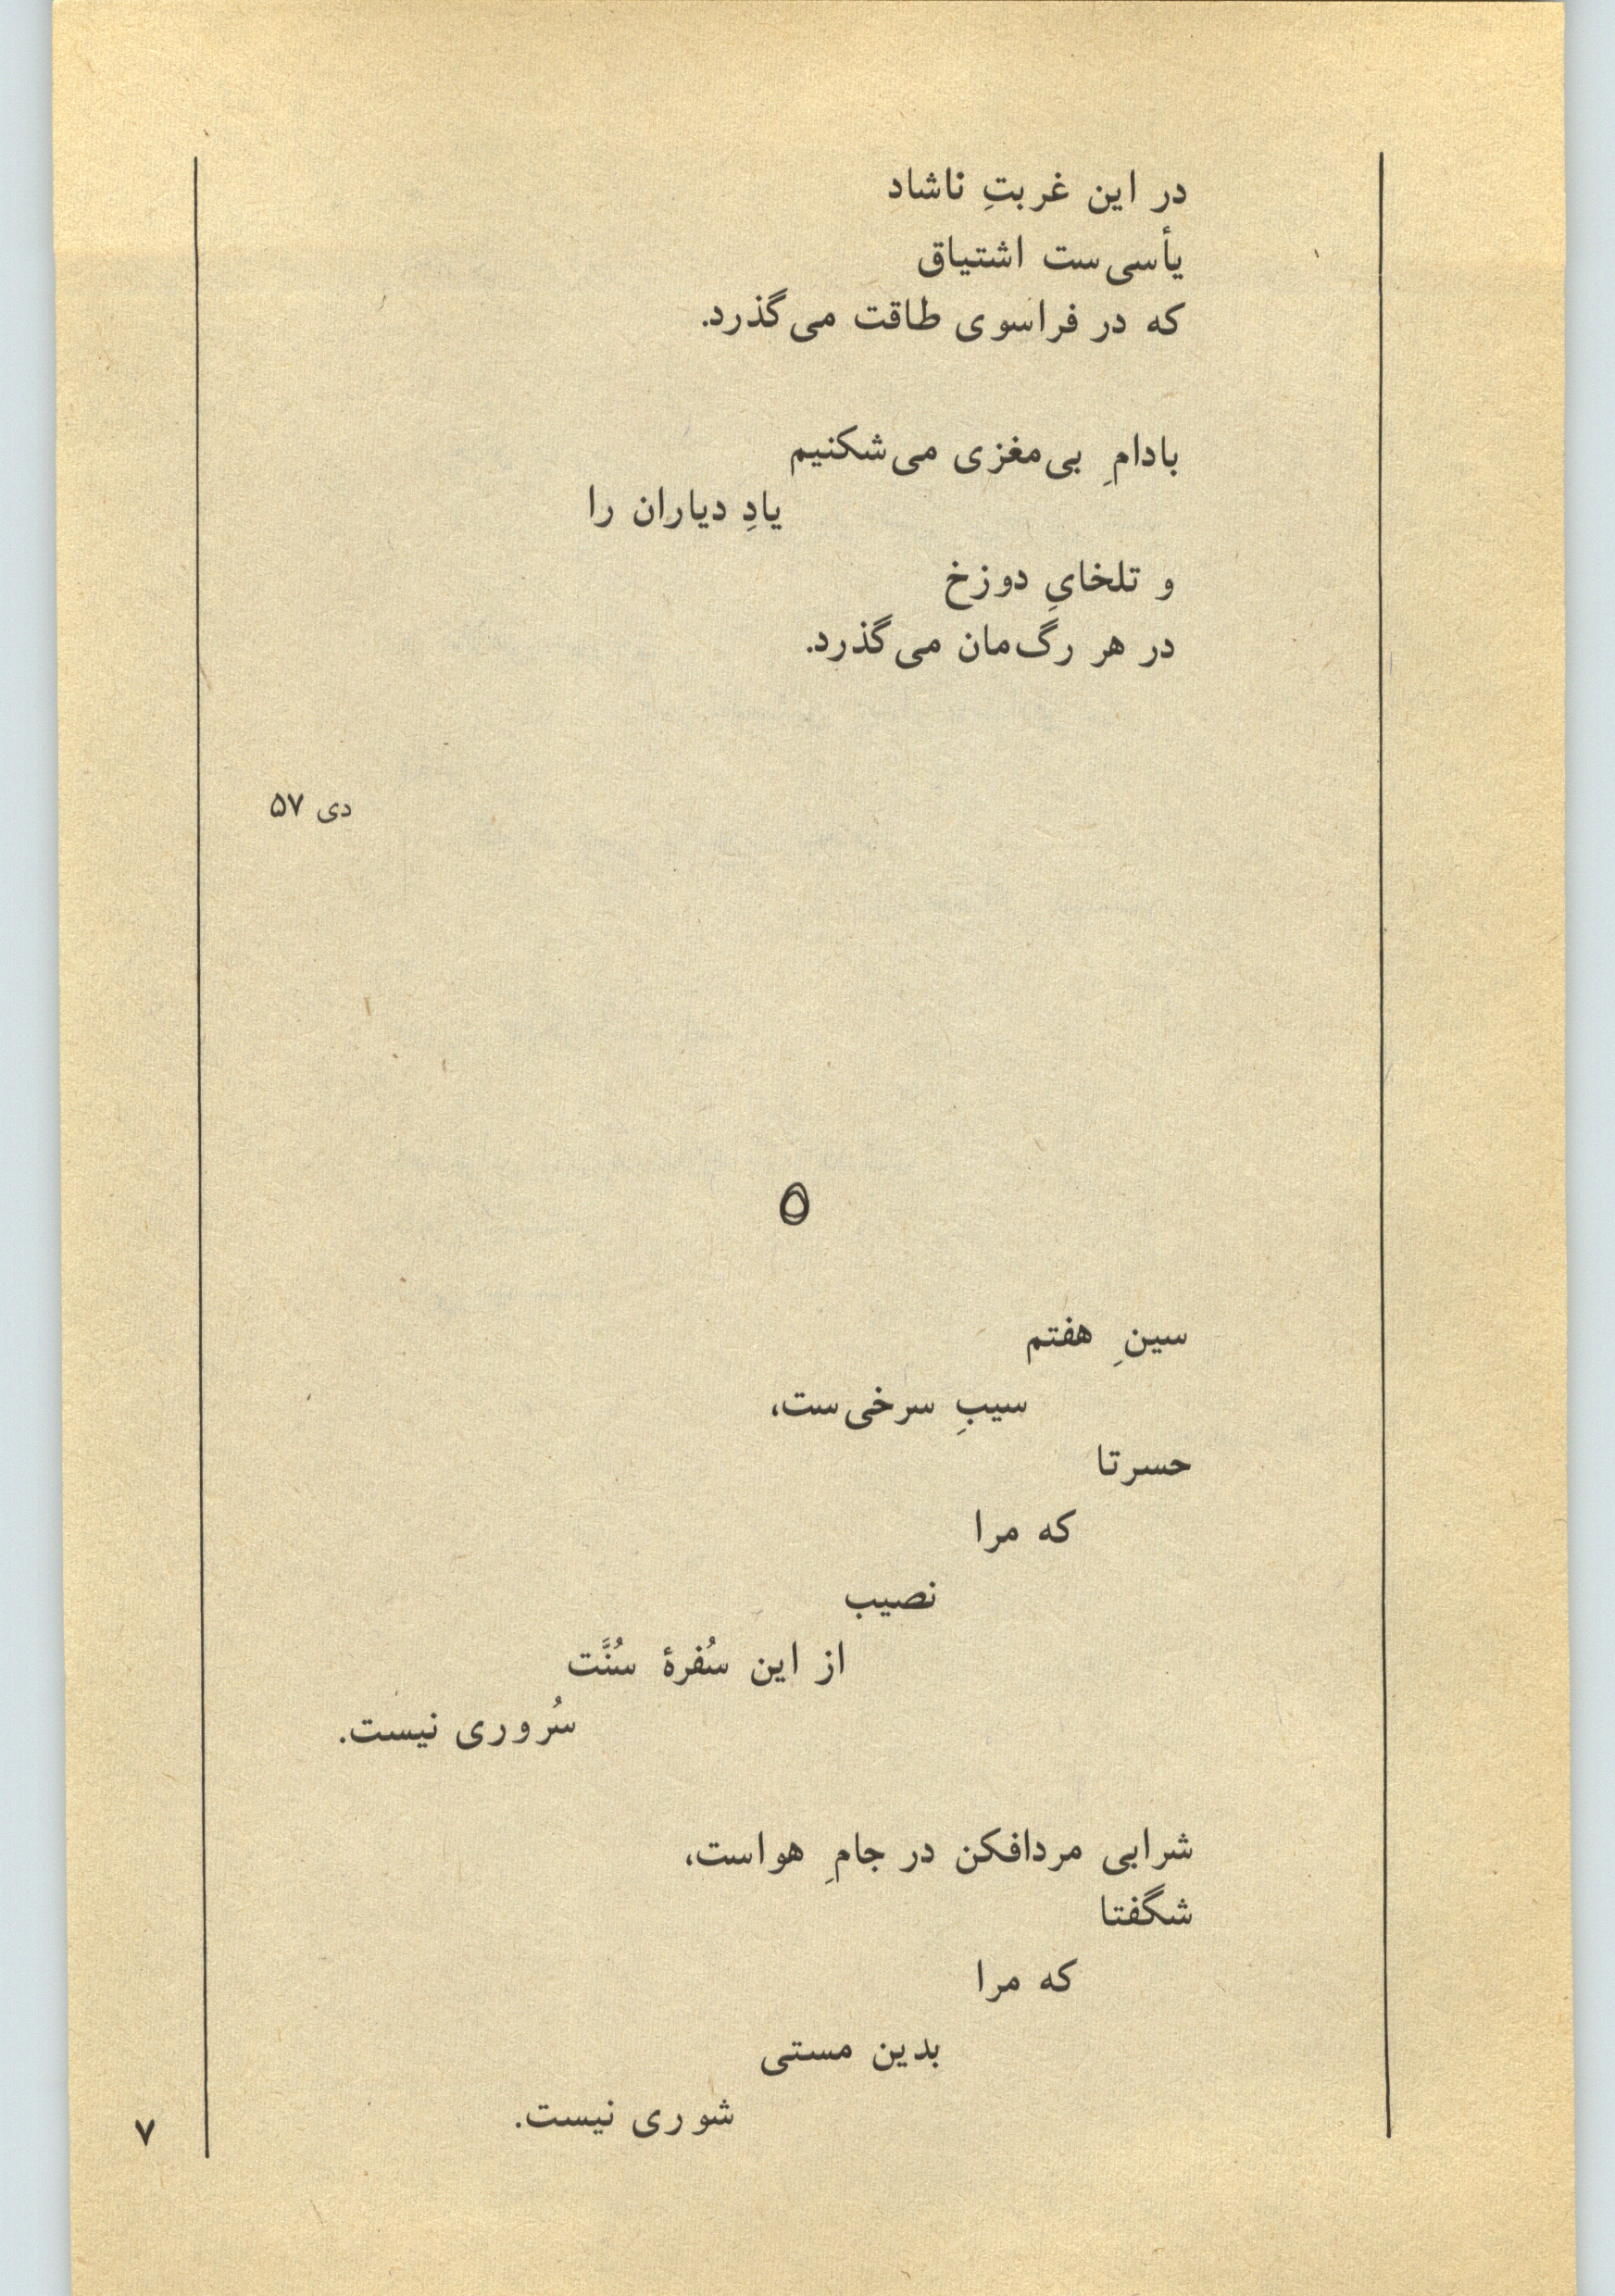 در این غربتِ ناشاد
یأسی‌ست اشتیاق
که در فراسوی طاقت می‌گذرد.
بادامِ بی‌مغزی می‌شکنیم
یادِ دیاران را
و تلخایِ دوزخ
در هر رگ‌مان می‌گذرد.
دی ۵۷
سینِ هفتم
سیبِ سرخی‌ست،
حسرتا
که مرا
نصیب
از این سُفرهٔ سُنَّت
سُروری نیست.
شرابی مردافکن در جامِ هواست،
شگفتا
که مرا
بدین مستی
شوری نیست.
۷